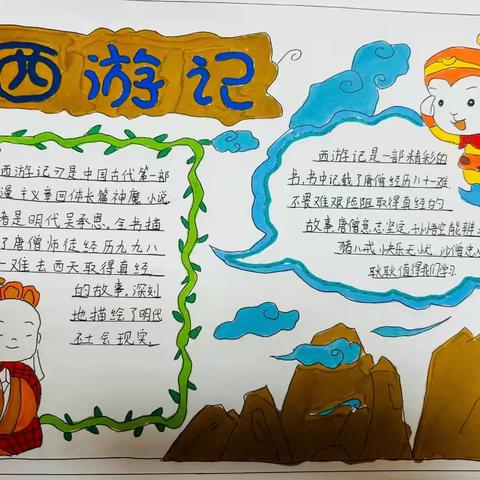 西游记
西游记》是中国古代第一部
漫主义章回体长篇神魔小说
者是明代吴承恩。全书描
了唐僧师徒经历九九八
一难去西天取得真经
的故事，深刻
地描绘了明代
社会现实。
西游记是一部精彩的
书，书中记载了唐僧经历八十一难，
不畏艰难险阻取得真经的
故事唐僧意志坚定，孙悟空能辨
猪八戒小快乐无忧，沙僧忠
耿耿值得我们学习